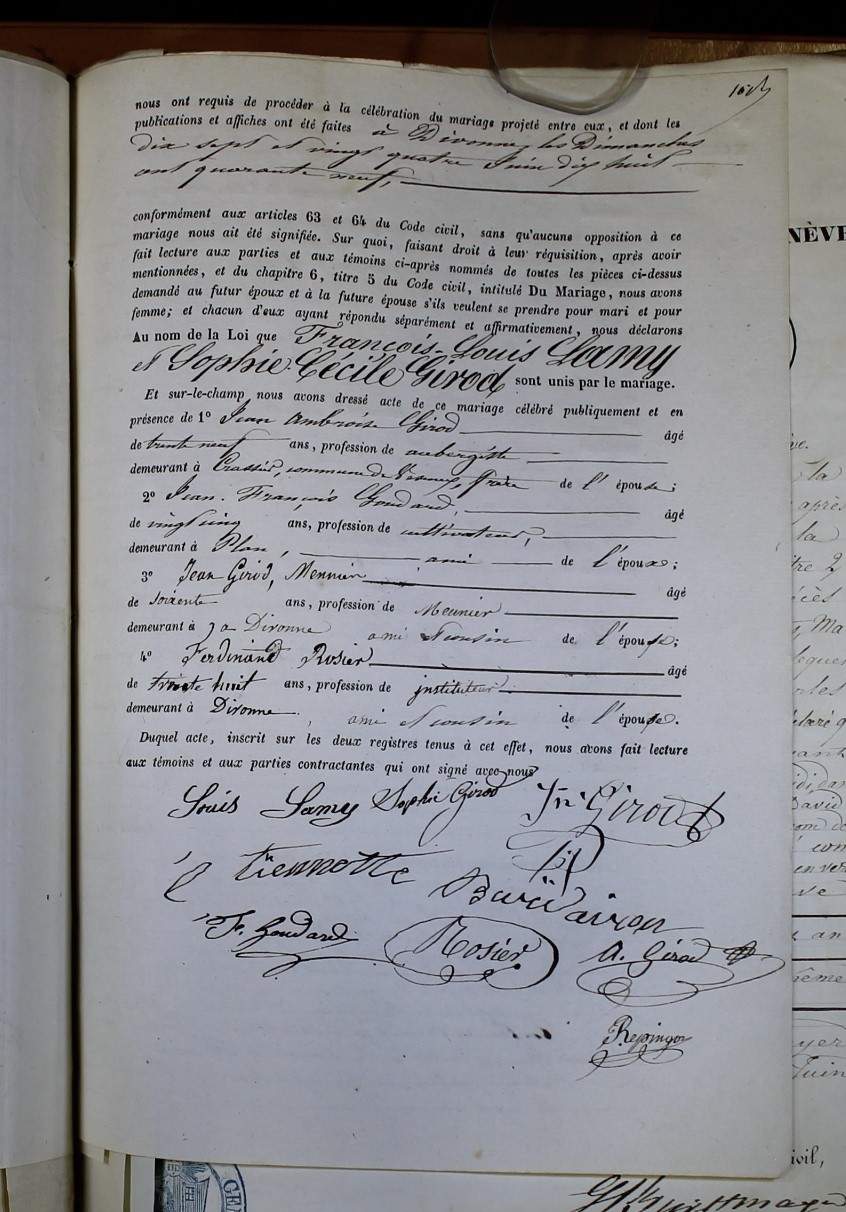 nous ont requis de procéder à la célébration du mariage projeté entre eux, et dont les
publications et affiches ont été faites à Divonne, les Dimanches
dix sept et vingt quatre Juin dix huit
cent quarante neuf,
conformément aux articles 63 et 64 du Code civil, sans qu'aucune opposition à ce
mariage nous ait été signifiée. Sur quoi, faisant droit à leur réquisition, après avoir
fait lecture aux parties et aux témoins ci-après nommés de toutes les pièces ci-dessus
mentionnées, et du chapitre 6, titre 5 du Code civil, intitulé Du Mariage, nous avons
demandé au futur époux et à la future épouse s'ils veulent se prendre pour mari et pour
femme; et chacun d'eux ayant répondu séparément et affirmativement, nous déclarons
Au nom de la Loi que François-Louis Lamy
et Sophie-Cécile Girod sont unis par le mariage.
Et sur-le-champ nous avons dressé acte de ce mariage célébré publiquement et en
présence de 1° Jean Ambroise Girod âgé
de trente neuf ans, profession de aubergiste
demeurant à Crassier, commune de frère de l'épouse;
2° Jean-François Goudard, âgé
de vingt cinq ans, profession de cultivateur,
demeurant à Plan, ami de l'époux;
3° Jean Girod, Meunier âgé
de soixante ans, profession de Meunier
demeurant à Divonne ami et cousin de l'épouse;
4° Ferdinand Rosier âgé
de trente huit ans, profession de instituteur
demeurant à Divonne, ami et cousin de l'épouse.
Duquel acte, inscrit sur les deux registres tenus à cet effet, nous avons fait lecture
aux témoins et aux parties contractantes qui ont signé avec nous
Louis Lamy Sophie Girod Jn Girod
Etiennotte
F. Goudard Rosier A. Girod
NÈVE
la
après
la
Ma
David
an
même
Juin
ivil,